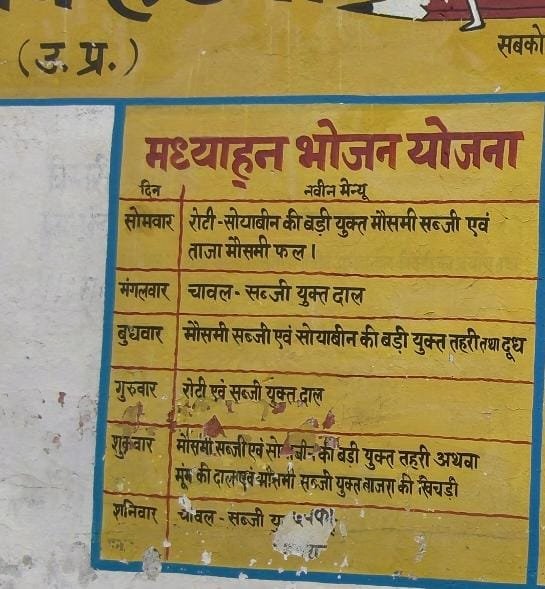 (उ. प्र.)
सबको
मध्याह्न भोजन योजना
दिन नवीन मेन्यू
सोमवार रोटी-सोयाबीन की बड़ी युक्त मौसमी सब्जी एवं
ताजा मौसमी फल।
मंगलवार चावल- सब्जी युक्त दाल
बुधवार मौसमी सब्जी एवं सोयाबीन की बड़ी युक्त तहरी तथा दूध
गुरुवार रोटी एवं सब्जी युक्त दाल
शुक्रवार मौसमी सब्जी एवं सोयाबीन की बड़ी युक्त तहरी अथवा
मूंग की दाल एवं मौसमी सब्जी युक्त बाजरा की खिचड़ी
शनिवार चावल - सब्जी